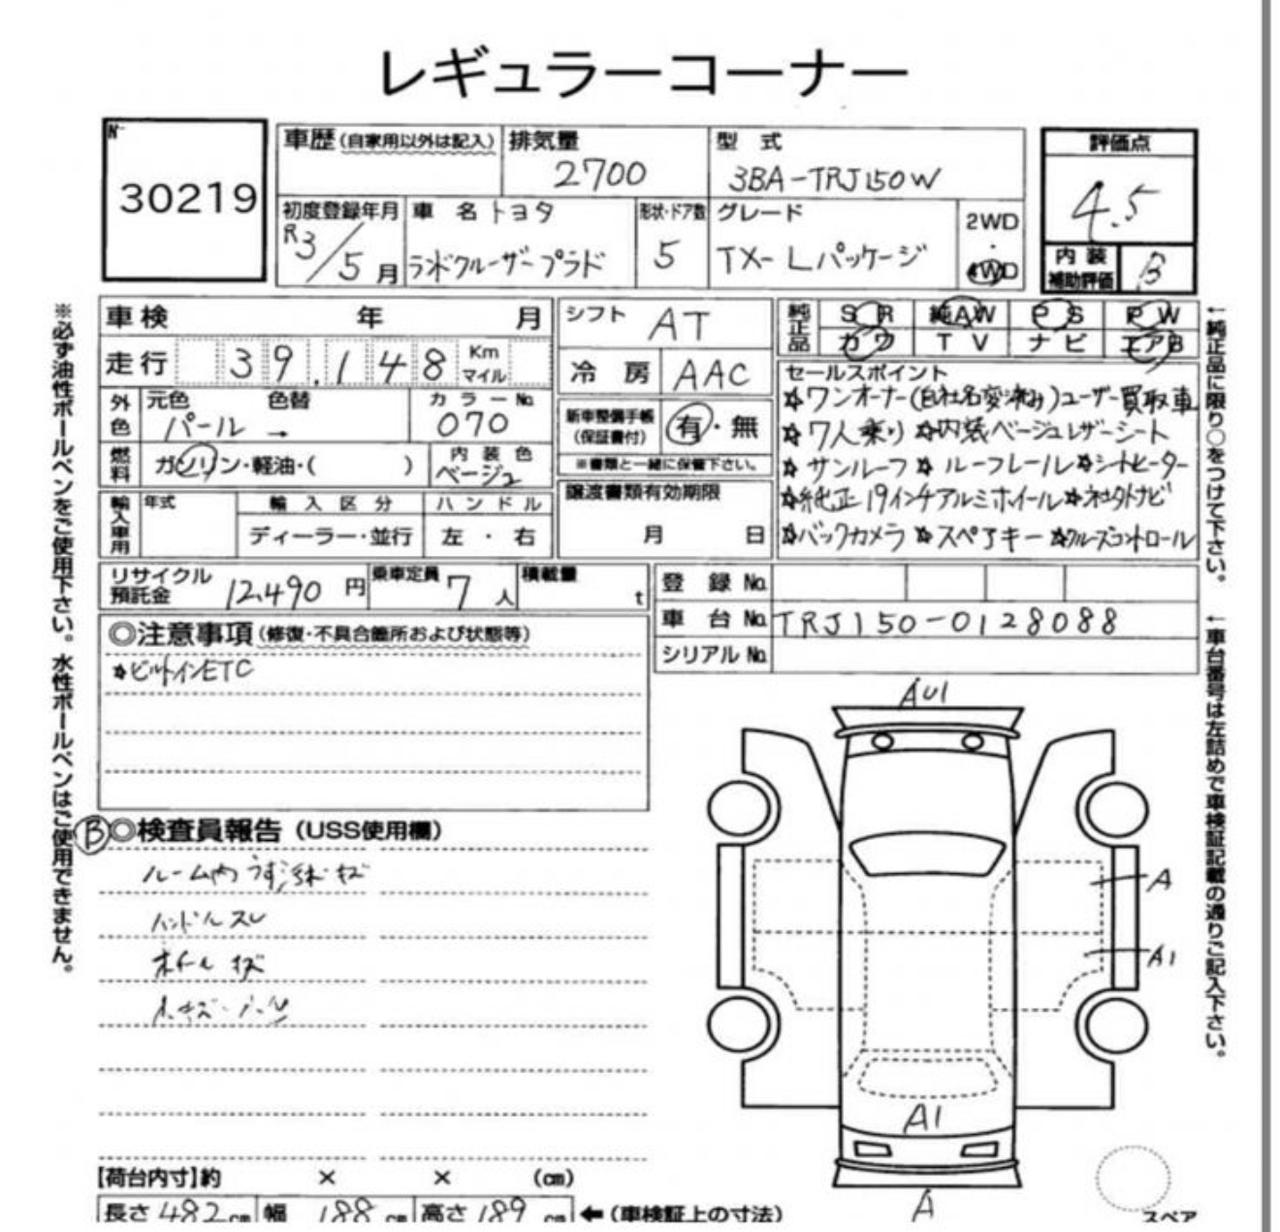 レギュラーコーナー
No. 30219
車歴(自家用以外は記入)
排気量 2700
型式 3BA-TRJ150W
評価点 4.5
初度登録年月 R3/5月
車名 トヨタ ランドクルーザープラド
形状・ドア数 5
グレード TX-Lパッケージ
2WD・4WD
内装補助評価 B
車検 年 月
シフト AT
純正品 SR 純AW PS PW
カワ TV ナビ エアB
走行 39,148 Km マイル
冷房 AAC
外色 元色 パール → 色替
カラーNo. 070
新車整備手帳(保証書付) 有・無
※書類と一緒に保管下さい。
燃料 ガソリン・軽油・( )
内装色 ベージュ
セールスポイント
☆ワンオーナー(自社名変済み)ユーザー買取車
☆7人乗り ☆内装ベージュレザーシート
☆サンルーフ ☆ルーフレール ☆シートヒーター
☆純正19インチアルミホイール ☆社外ナビ
☆バックカメラ ☆スペアキー ☆クルーズコントロール
輸入車用 年式 輸入区分 ハンドル
ディーラー・並行 左・右
譲渡書類有効期限
月 日
リサイクル預託金 12,490円
乗車定員 7人
積載量 t
登録No.
車台No. TRJ150-0128088
シリアルNo.
◎注意事項(修復・不具合箇所および状態等)
☆ビルトインETC
B ◎検査員報告(USS使用欄)
ルーム内うすシミ・キズ
ハンドルスレ
ホイールキズ
AU1
A
A1
A1
A
スペア
【荷台内寸】約 × × (cm)
長さ 482cm 幅 188cm 高さ 189cm ←(車検証上の寸法)
※必ず油性ボールペンをご使用下さい。水性ボールペンはご使用できません。
←純正品に限り○をつけて下さい。
←車台番号は左詰めで車検証記載の通りご記入下さい。